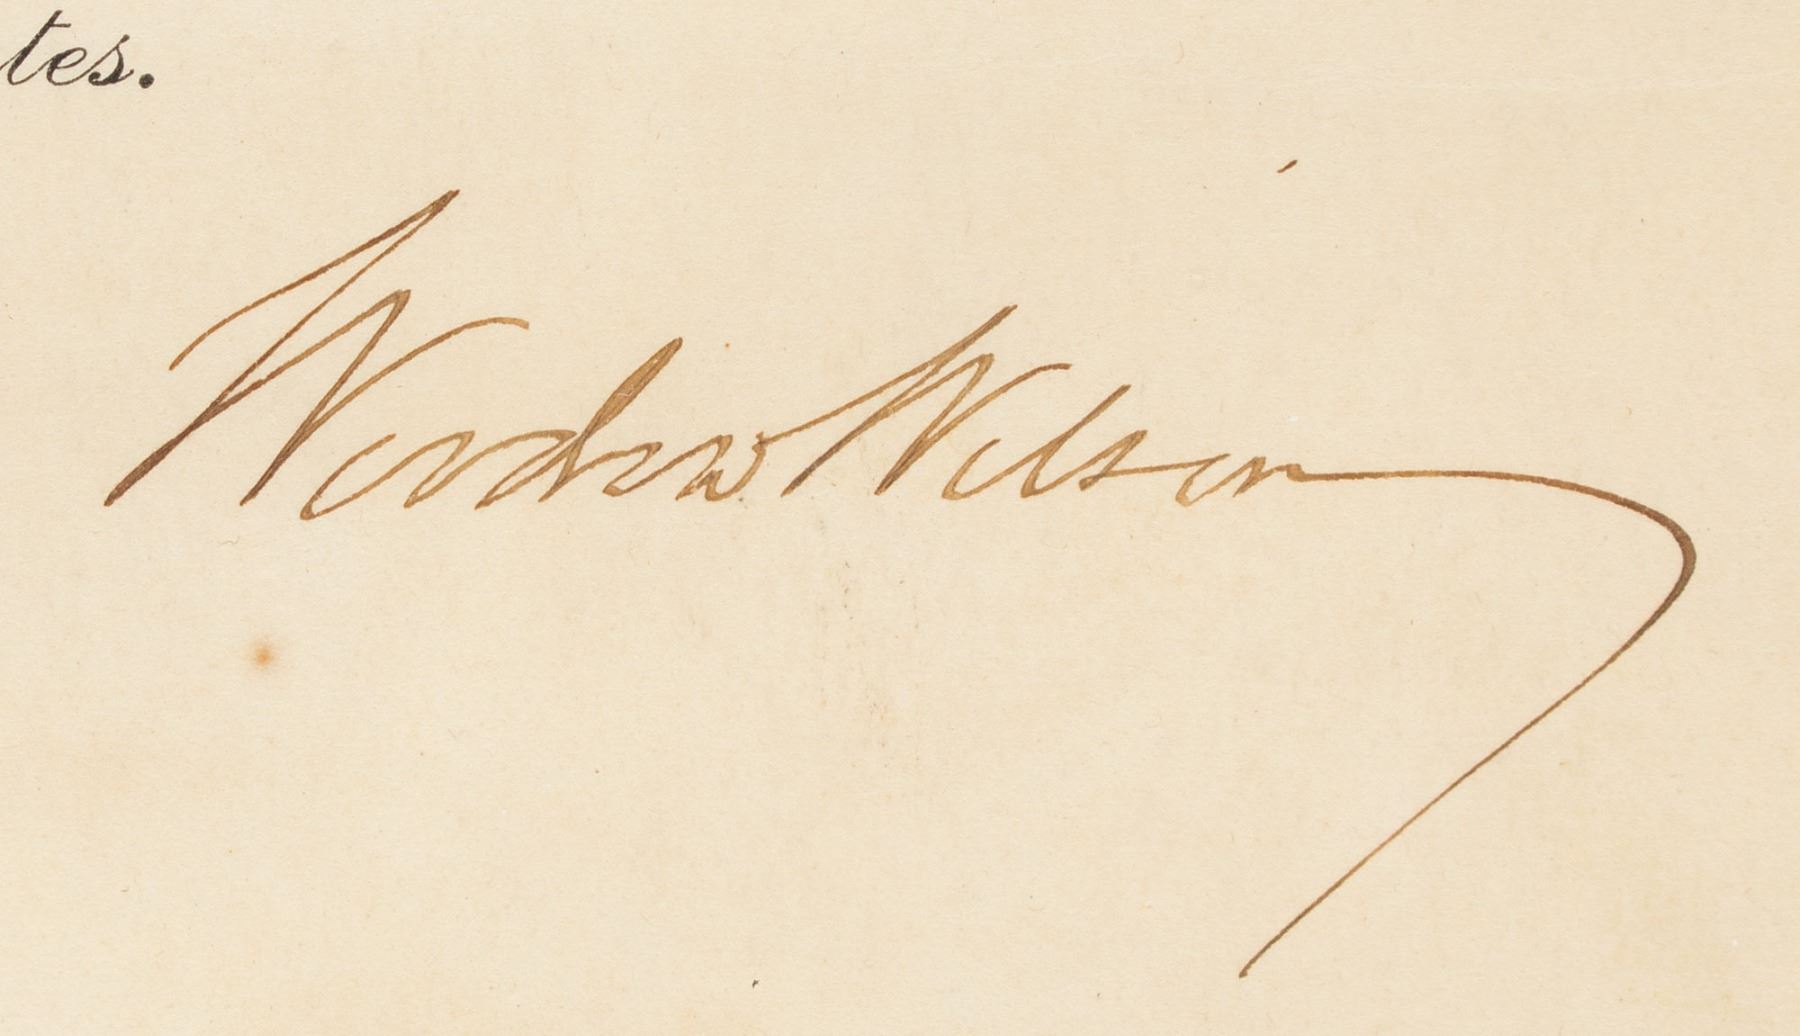 tes.
Woodrow Wilson